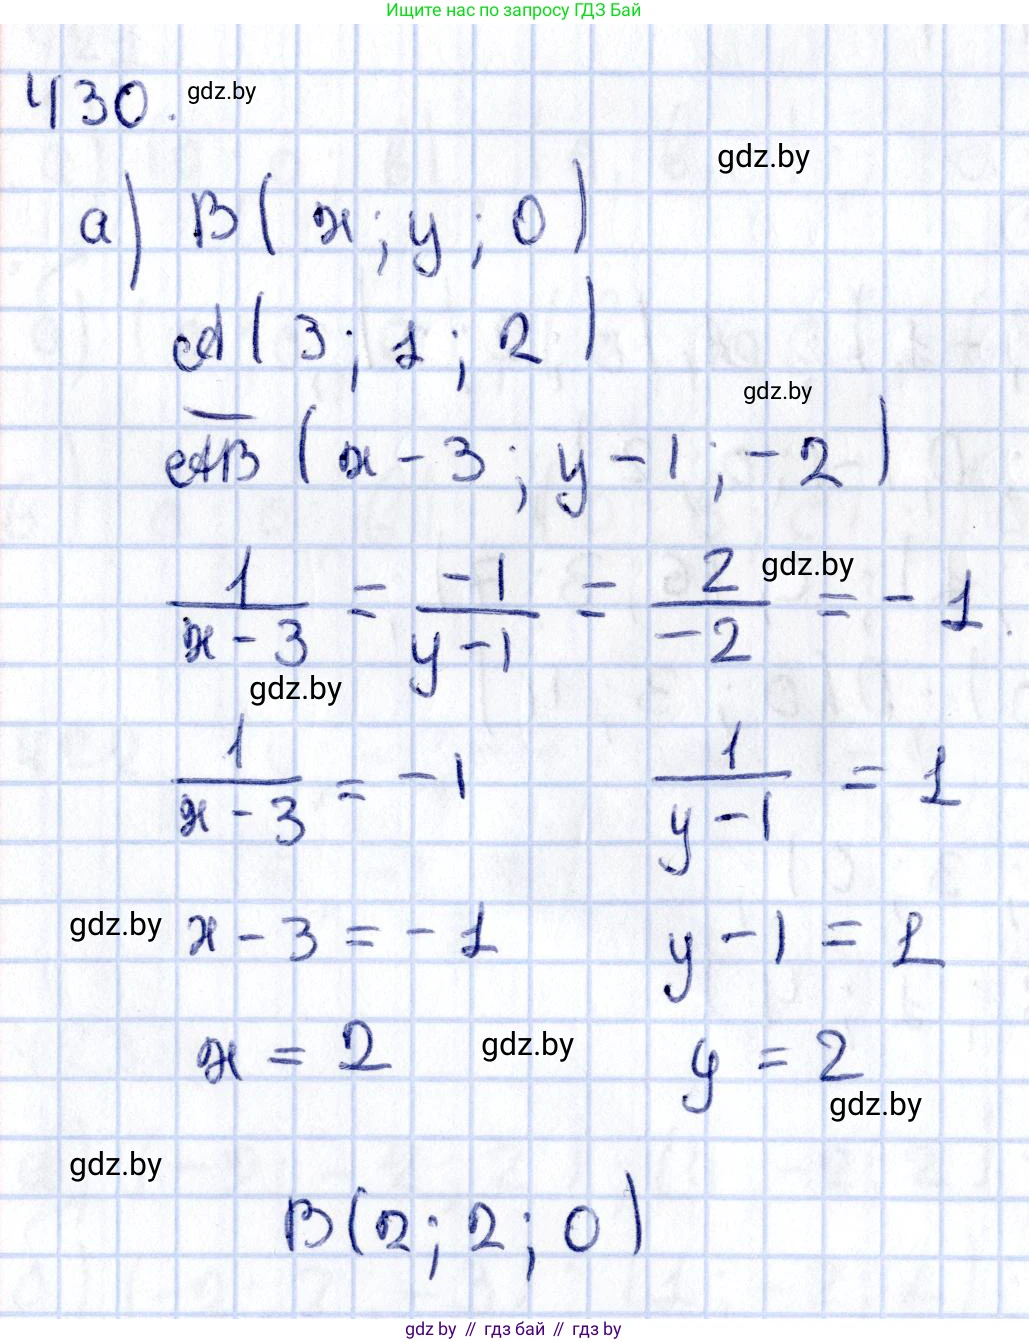 Ищите нас по запросу ГДЗ Бай
430. gdz.by
gdz.by
а) B( x ; y ; 0 )
A( 3 ; 1 ; 2 )
gdz.by
AB ( x - 3 ; y - 1 ; - 2 )
1/(x - 3) = -1/(y - 1) = 2/(-2) = - 1.
gdz.by
gdz.by
1/(x - 3) = - 1    1/(y - 1) = 1
gdz.by x - 3 = - 1    y - 1 = 1
x = 2 gdz.by y = 2
gdz.by
gdz.by
B(2 ; 2 ; 0)
gdz.by // гдз бай // гдз by